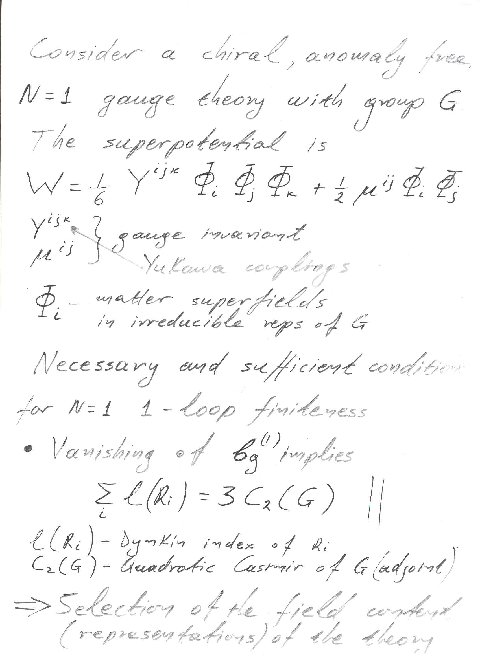 Consider a chiral, anomaly free,
N=1 gauge theory with group G
The superpotential is
W = 1/6 Y^{ijk} Φ_i Φ_j Φ_k + 1/2 μ^{ij} Φ_i Φ_j
Y^{ijk}
μ^{ij} } gauge invariant
Yukawa couplings
Φ_i - matter superfields
in irreducible reps of G
Necessary and sufficient condition
for N=1 1-loop finiteness
• Vanishing of b_g^{(1)} implies
Σ_i l(R_i) = 3 C_2(G) ||
l(R_i) - Dynkin index of R_i
C_2(G) - Quadratic Casimir of G (adjoint)
⇒ Selection of the field content
(representations) of the theory